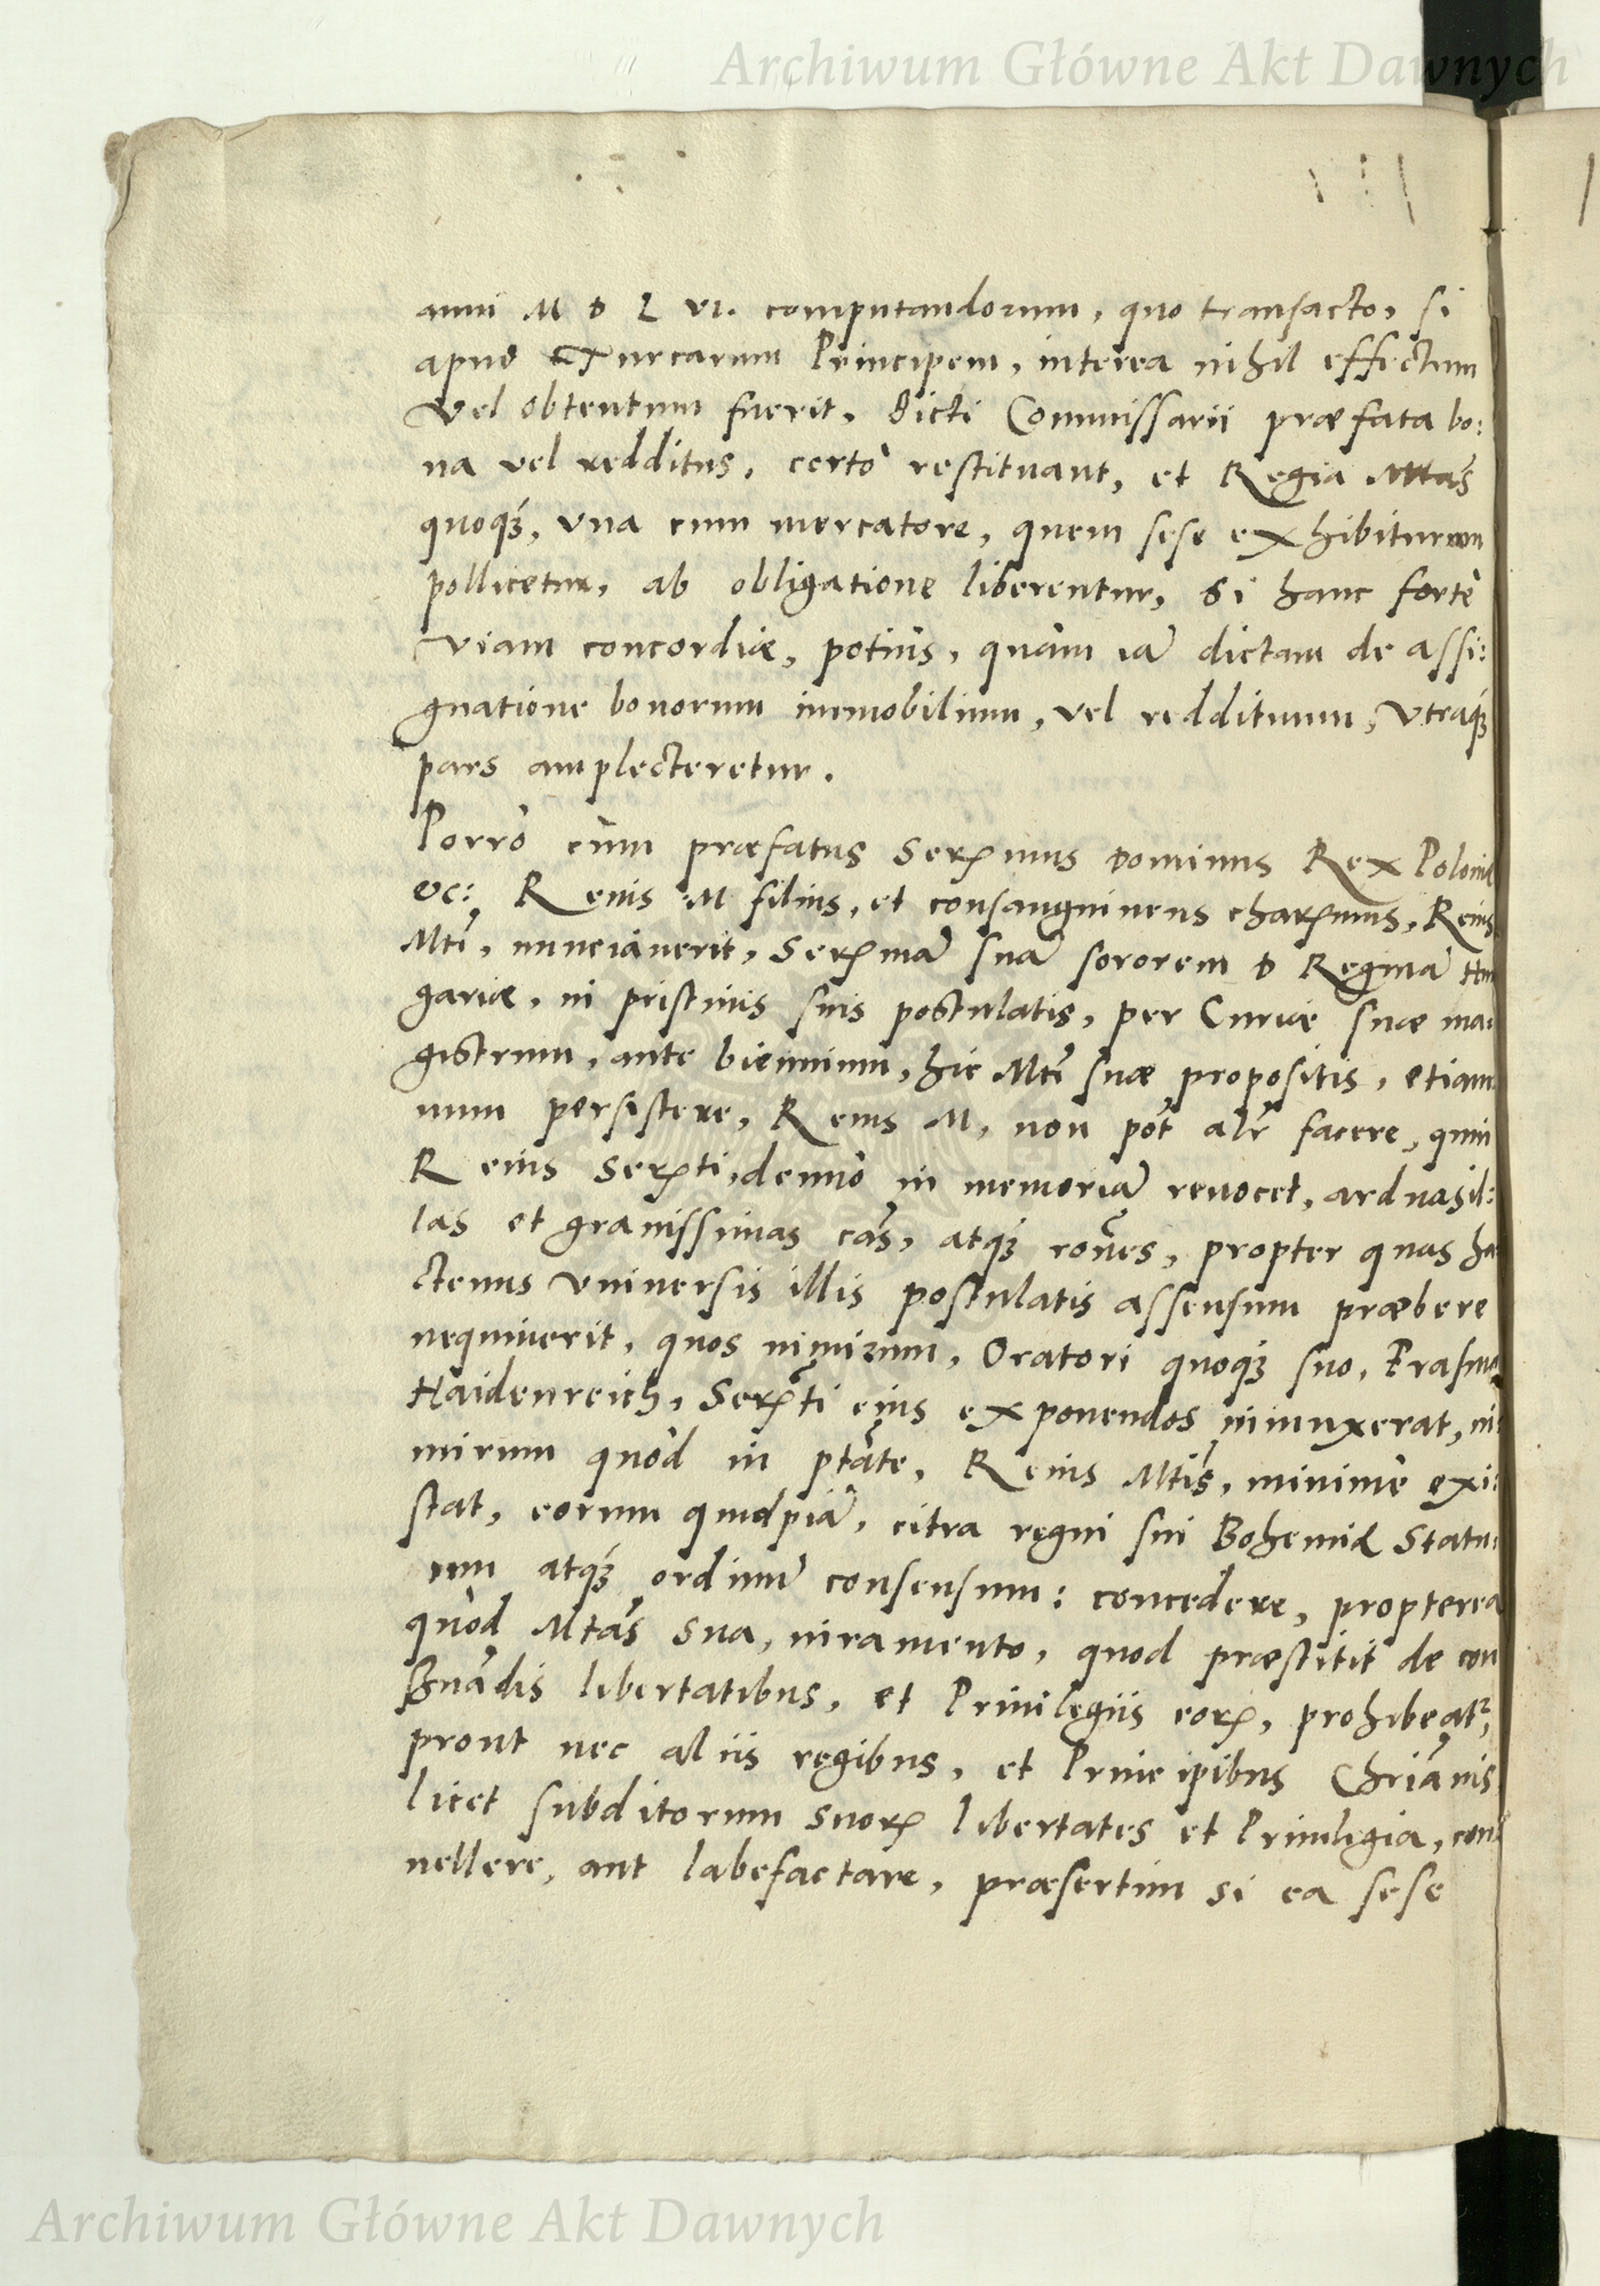 Archiwum Główne Akt Dawnych
anni M D L VI. computandorum, quo transacto, si
apud Turcarum Principem, interea nihil effectum
vel obtentum fuerit, dicti Commissarii præfata bo:
na vel redditus, certo restituant, et Regia Mtas
quoq3, vna cum mercatore, quem sese exhibiturum
pollicetur, ab obligatione liberentur, Si hanc forte
viam concordiæ, potius, quàm iã dictam de assi:
gnatione bonorum immobilium, vel reddituum, vtraq3
pars amplecteretur.
Porrò cùm præfatus Serꝫmus Dominus Rex Poloniæ
&c: R eius M filius, et consanguineus charꝫmus, R eius
Mti, nunciauerit, Serꝫmã suã sororem D Reginã Hun
gariæ, in pristinis suis postulatis, per Curiæ suæ ma:
gistrum, ante biennium, hic Mti suæ propositis, etiam
num persistere, R eius M, non pot̃ alr̃ facere, quin
R eius Serꝫti, denuò in memoriã reuocet, arduas il:
las et grauissimas cãs, atq3 rões, propter quas ha
ctenus vniuersis illis postulatis assensum præbere
nequiuerit, quos nimirum, Oratori quoq3 suo, Erasmo
Haidenreich, Serꝫti eius exponendos iniunxerat, ni:
mirum quòd in ptãte, R eius Mtis, minime exi:
stat, eorum quidpiã, citra regni sui Bohemiæ Statu:
um atq3 ordinũ consensum: concedere, propterea
quòd Mtas Sua, iuramento, quod præstitit de con
seruãdis libertatibus, et Priuilegiis eorꝫ, prohibeatr,
prout nec aliis regibus, et Principibus Chriãnis
licet subditorum suorꝫ libertates et Priuilegia, con:
uellere, aut labefactare, præsertim si ea sese
Archiwum Główne Akt Dawnych